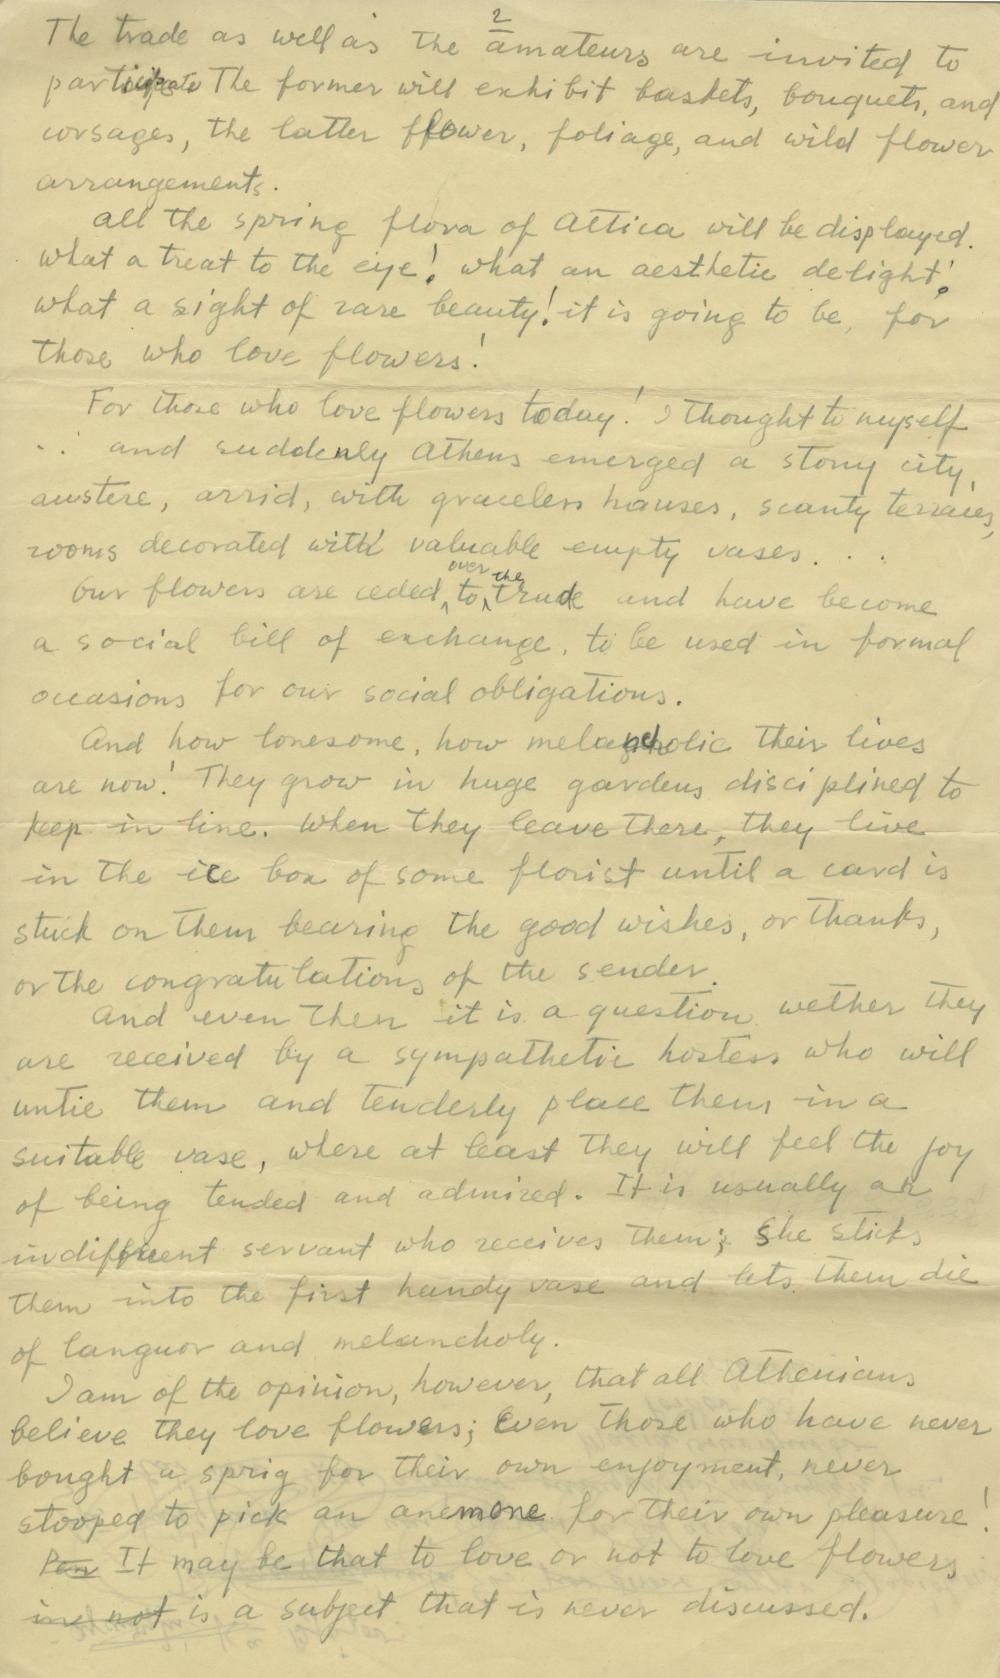 2
The trade as well as the amateurs are invited to
participate The former will exhibit baskets, bouquets, and
corsages, the latter flower, foliage, and wild flower
arrangements.
All the spring flora of Attica will be displayed.
what a treat to the eye! what an aesthetic delight!
what a sight of rare beauty! it is going to be, for
those who love flowers!
For those who love flowers today! I thought to myself
... and suddenly Athens emerged a stony city,
austere, arrid, with graceless houses, scanty terraces,
rooms decorated with valuable empty vases...
over the
Our flowers are ceded, to trade and have become
a social bill of exchange, to be used in formal
occasions for our social obligations.
And how lonesome, how melancholic their lives
are now! They grow in huge gardens disciplined to
keep in line. When they leave there, they live
in the ice box of some florist until a card is
stuck on them bearing the good wishes, or thanks,
or the congratulations of the sender.
And even then it is a question wether they
are received by a sympathetic hostess who will
untie them and tenderly place them in a
suitable vase, where at least they will feel the joy
of being tended and admired. It is usually an
indifferent servant who receives them; She sticks
them into the first handy vase and lets them die
of languor and melancholy.
I am of the opinion, however, that all Athenians
believe they love flowers; Even those who have never
bought a sprig for their own enjoyment, never
stooped to pick an anemone for their own pleasure!
Per It may be that to love or not to love flowers
is a subject that is never discussed.